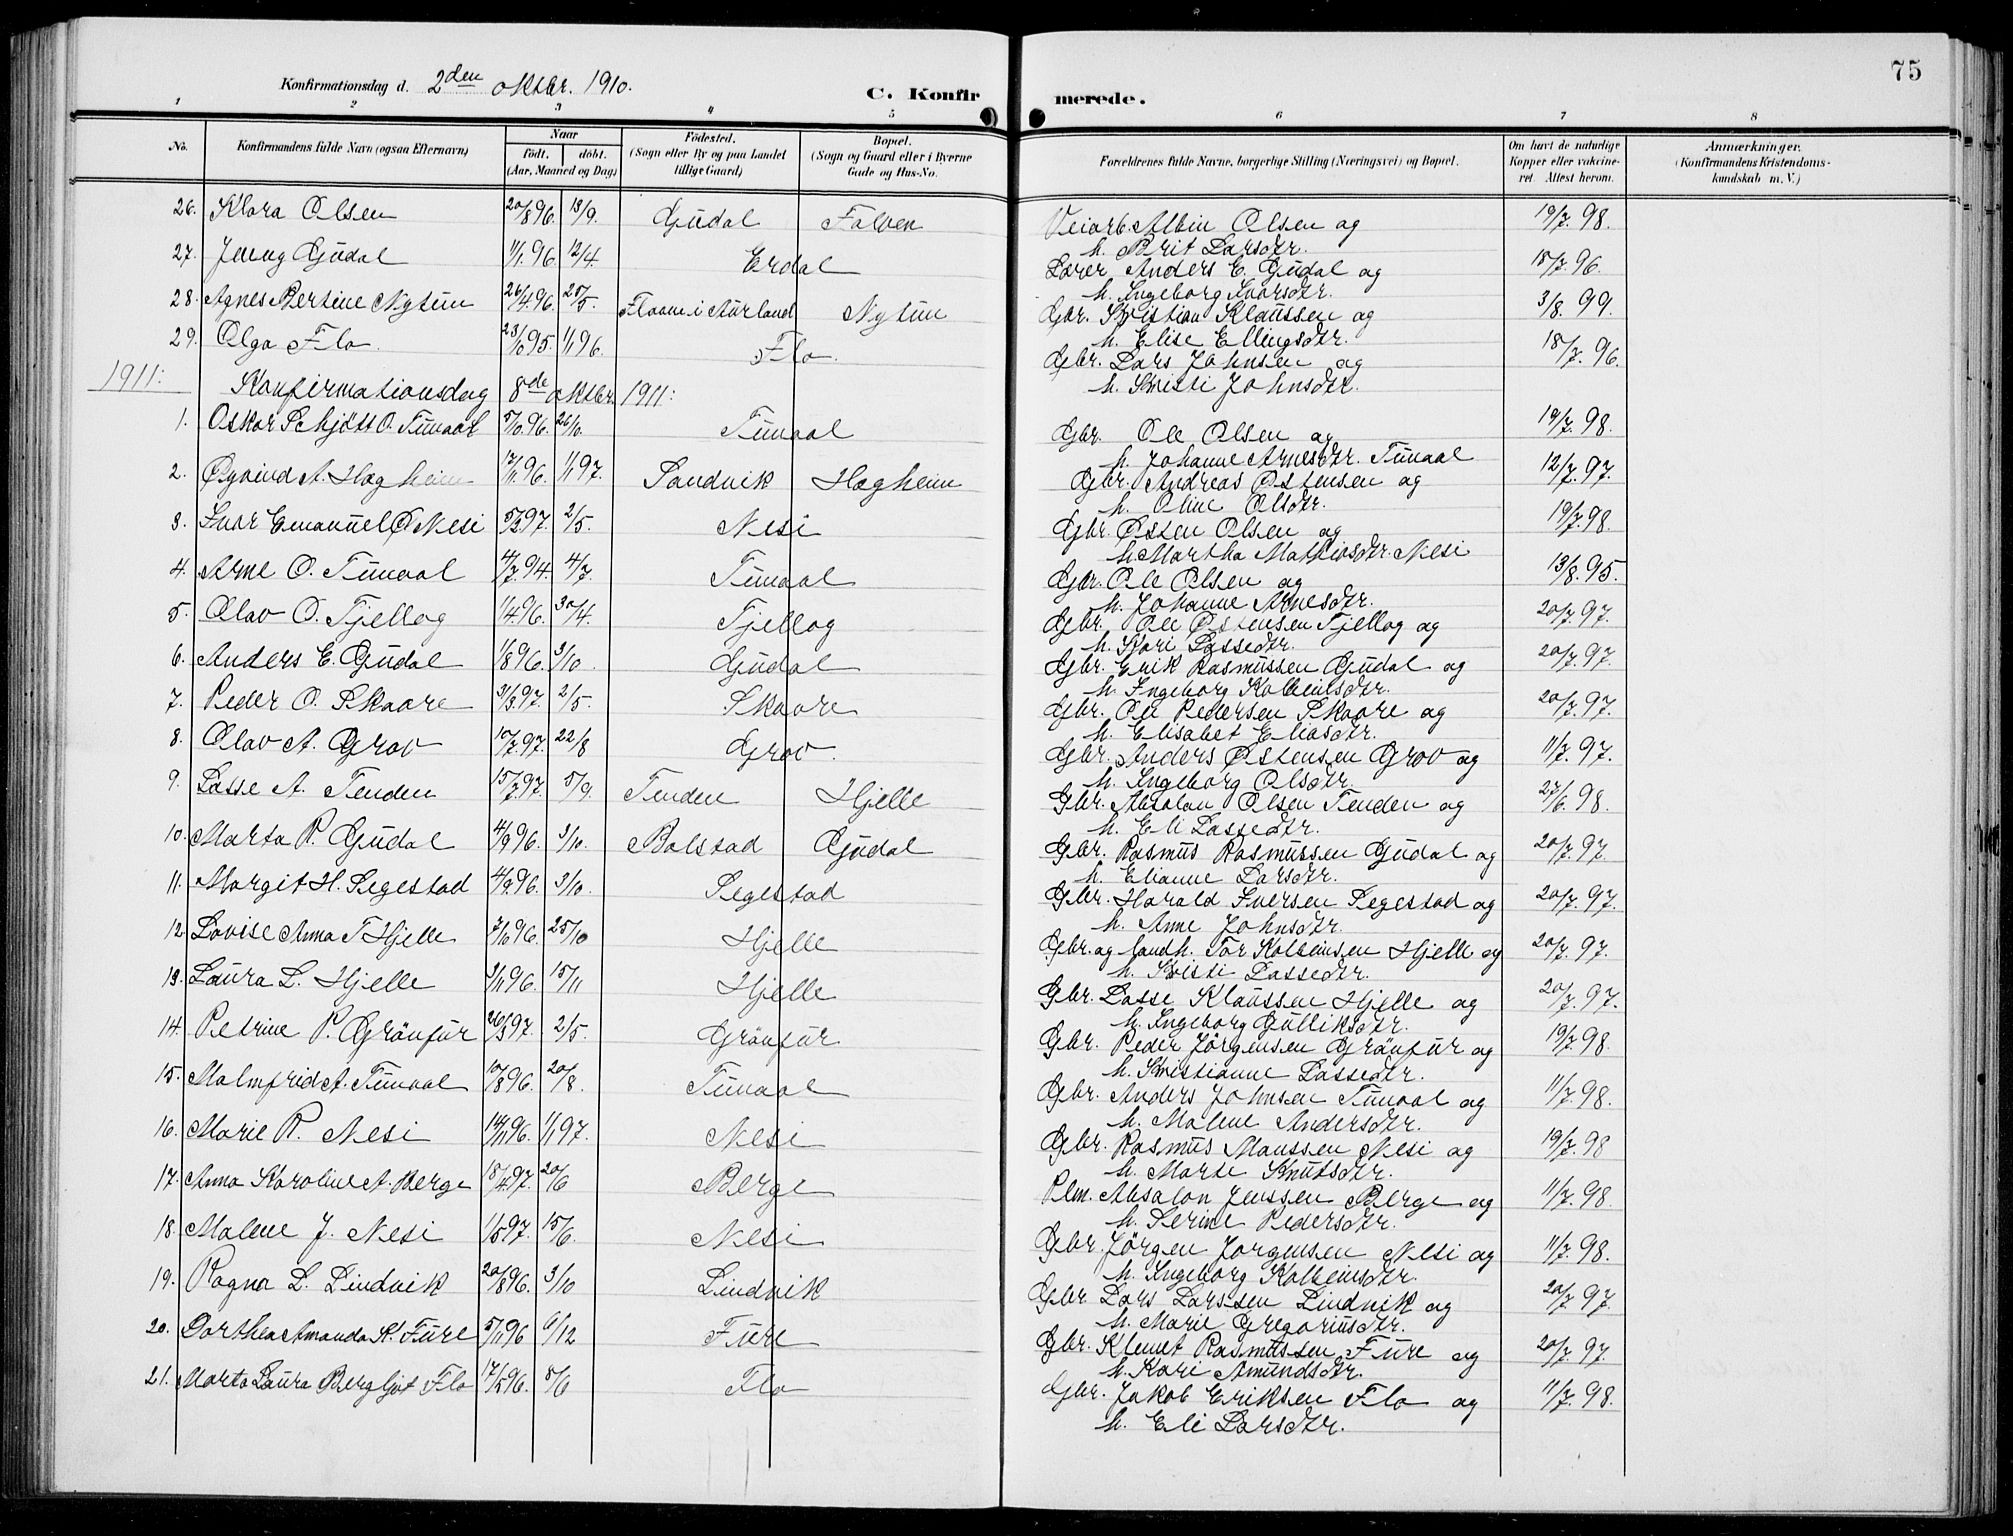 75
Konfirmationsdag d. 2den oktbr. 1910.
C. Konfirmerede.
1 2 3 4 5 6 7 8
No.
Konfirmandens fulde Navn (ogsaa Efternavn)
Naar
født. døbt.
(Aar, Maaned og Dag)
Fødested.
(Sogn eller By og paa Landet
tillige Gaard)
Bopæl.
(Sogn og Gaard eller i Byerne
Gade og Hus-No.
Forældrenes fulde Navne, borgerlige Stilling (Næringsvei) og Bopæl.
Om havt de naturlige
Kopper eller vakcine-
ret. Attest herom.
Anmærkninger.
(Konfirmandens Kristendoms-
kundskab m. V.)
26. Klara Olsen 20/8 96. 13/9. Gjudal Folven Veiarb. Albin Olsen og 19/7. 98.
h. Brit Larsdtr.
27. Jenny Gjudal 11/1. 96. 12/4. Erdal Lærer Anders E. Gjudal og 18/7. 96.
h. Ingeborg Ivarsdtr.
28. Agnes Bertine Nytun 26/4 96. 25/5. Flaam i Aurland Nytun Gbr. Kristian Klaussen og 3/8. 99.
h. Elise Ellingsdtr.
29. Olga Flo. 95. 1/1 96. Flo. Gbr. Lars Johnsen og 18/7. 96.
h. Kristi Johnsdtr.
1911: Konfirmationsdag 8de oktbr. 1911:
1. Oskar Schjött O. Tunaal 5/10. 96. 26/10. Tunaal Gbr. Ole Olsen og 19/7. 98.
h. Johanne Arnesdtr. Tunaal
2. Øyvind A. Hagheim 17/11. 96. 1/1 97. Sandvik Hagheim Gbr. Andreas Østensen og 12/7. 97.
h. Oline Olsdtr.
3. Ivar Emanuel Ø Nesi 97. 2/5. Nesi Gbr. Østen Olsen og 19/7. 98.
h. Martha Mathiasdtr. Nesi
4. Arne O. Tunaal 4/7. 94. 4/7. Tunaal Gbr. Ole Olsen og 13/8. 95.
h. Johanne Arnesdtr.
5. Olav O. Tjellog 1/4. 96. 30/4. Tjellog Gbr. Ole Østensen Tjellog og 20/7. 97.
h. Kari Lassedtr.
6. Anders E. Gjudal 1/8 96. 3/10. Gjudal Gbr. Erik Rasmussen Gjudal og 20/7. 97.
h. Ingeborg Kolbeinsdtr.
7. Peder O. Skaare 31/3 97. 2/5. Skaare Gbr. Ole Pedersen Skaare og 20/7. 97.
h. Elisabet Eliasdtr.
8. Olav A. Grov 10/7. 97. 22/8 Grov. Gbr. Anders Østensen Grov og 11/7. 97.
h. Ingeborg Olsdtr.
9. Lasse A. Tenden 15/7. 97. 5/9. Tenden Hjelle Gbr. Absalon Olsen Tenden og 27/6. 98.
h. Eli Lassedtr.
10. Marta R. Gjudal 4/9 96. 3/10. Bolstad Gjudal Gbr. Rasmus Rasmussen Gjudal og 20/7. 97.
h. Elianne Larsdtr.
11. Margit H. Segestad 4/9. 96. 3/10. Segestad Gbr. Harald Iversen Segestad og 20/7. 97.
h. Anne Johnsdtr.
12. Lovise Anna T Hjelle 7/10 96. 25/10 Hjelle Gbr. og landh. Tor Kolbeinsen Hjelle og 20/7. 97.
h. Kristi Lassedtr.
13. Laura L. Hjelle 3/11 96. 15/11 Hjelle Gbr. Lasse Klaussen Hjelle og 20/7. 97.
h. Ingeborg Gulliksdtr.
14. Petrine P. Grönfur 26/3 97. 2/5. Grönfur Gbr. Peder Jörgensen Grönfur og 19/7. 98.
h. Kristianne Lassedtr.
15. Malmfrid A. Tunaal 10/8 96. 20/8. Tunaal Gbr. Anders Johnsen Tunaal og 11/7. 98.
h. Malene Andersdtr.
16. Marie R. Nesi 14/11 96. 1/1 97. Nesi Gbr. Rasmus Monssen Nesi og 19/7. 98
h. Marte Knutsdtr.
17. Anna Karoline A. Berge 18/4 97. 20/6 Berge Plm. Absalon Jenssen Berge og 11/7. 98.
h. Serine Pedersdtr.
18. Malene J. Nesi 1/5 97. 15/6. Nesi Gbr. Jörgen Jorgensen Nesi og 11/7. 98.
h. Ingeborg Kolbeinsdtr.
19. Ragna L. Lindvik 20/8 96. 3/10 Lindvik Gbr. Lars Larssen Lindvik og 20/7 97.
h. Marie Gregoriusdtr.
20. Dorthea Amanda K. Fure 5/11 96 6/12 Fure Gbr. Klemet Rasmussen Fure og 20/7. 97.
h. Kari Amundsdtr.
21. Marta Laura Bergljot Flo 17/5 96. 5/6 Flo Gbr. Jakob Eriksen Flo og 11/7. 98.
h. Eli Larsdtr.